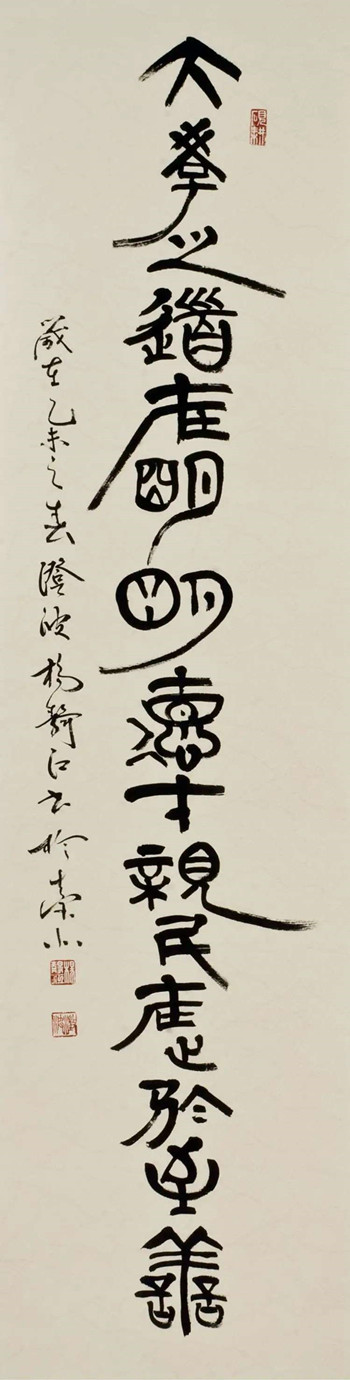 硯耕
大學之道在明明德在親民在止於至善
歲在乙未之春澄波楊江書於